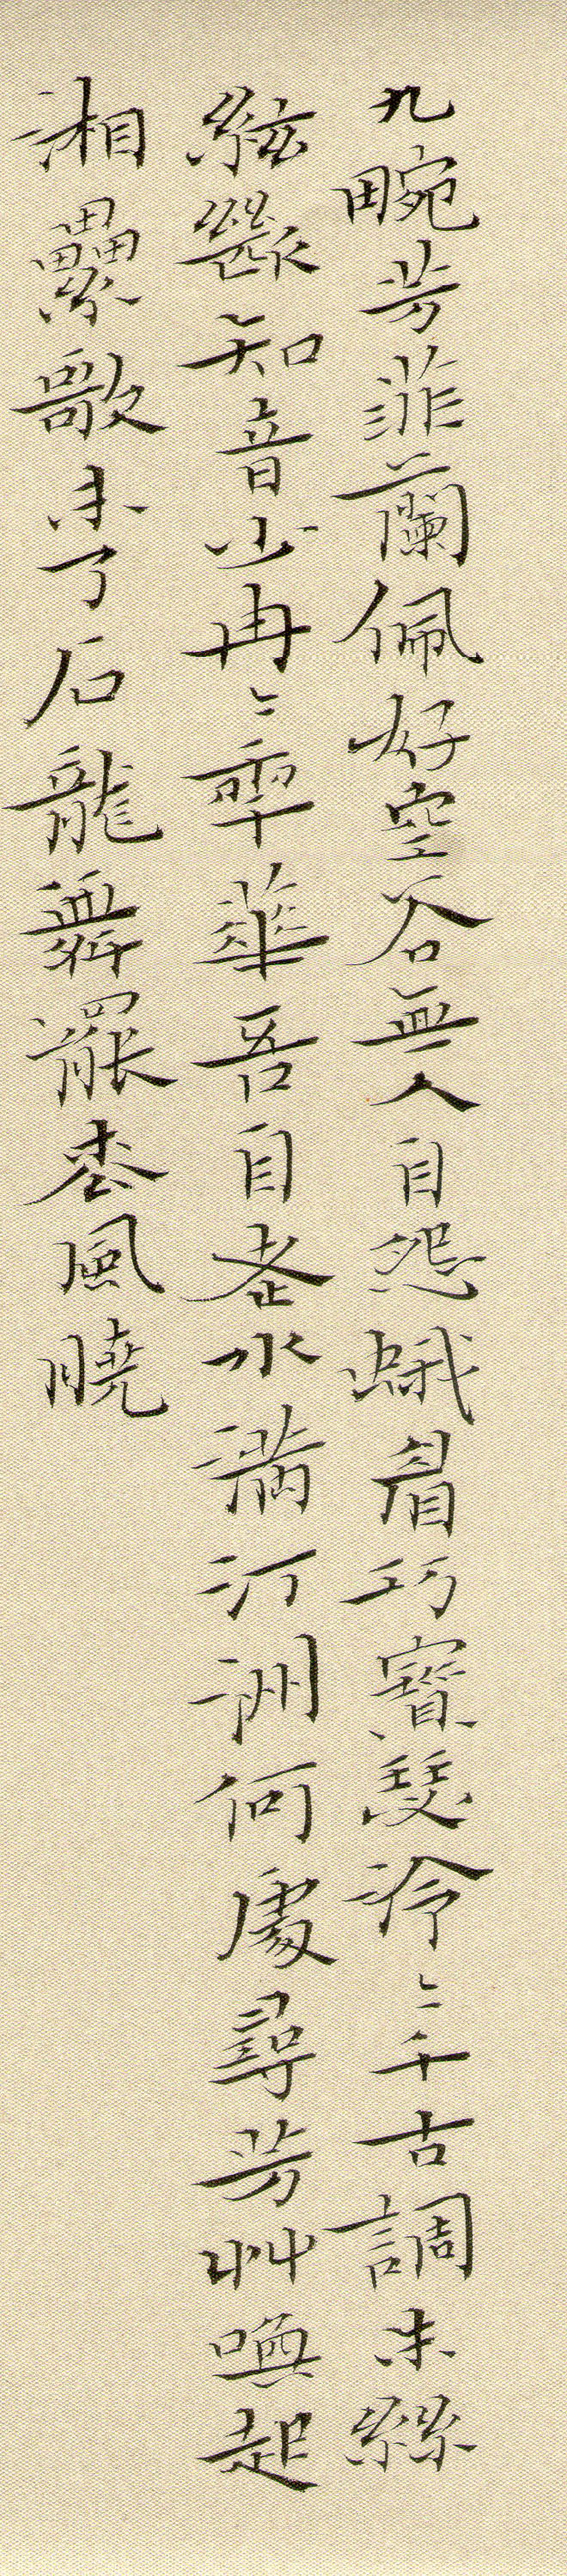 九畹芳菲蘭佩好空谷無人自怨蛾眉巧寶瑟泠〻千古調朱絲
絃斷知音少冉〻年華吾自老水滿汀洲何處尋芳艸喚起
湘纍歌未了石龍舞罷松風曉